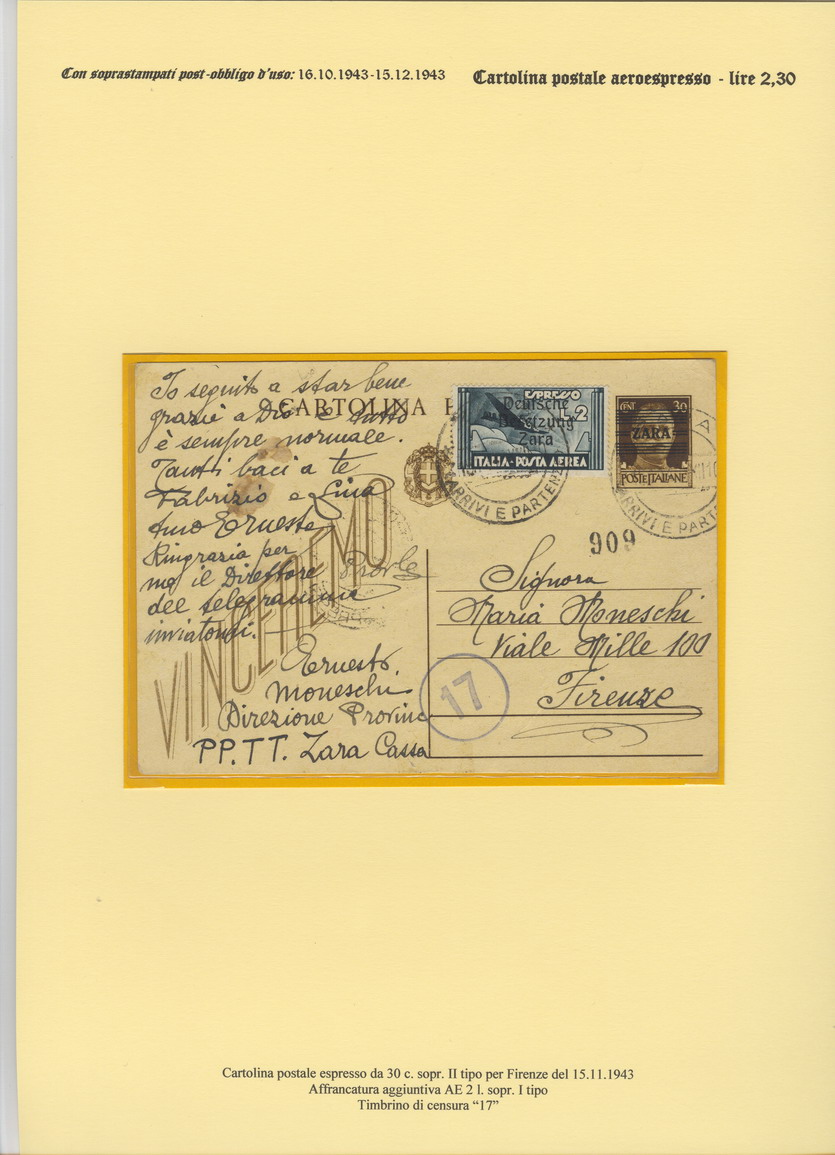 Con soprastampati post-obbligo d'uso: 16.10.1943-15.12.1943
Cartolina postale aeroespresso - lire 2,30
Io seguito a star bene
grazie a Dio e tutto
è sempre normale.
Tanti baci a te
Fabrizio e Lina
tuo Ernesto
Ringrazia per
me il Direttore
del telegramma
inviatomi.
CARTOLINA P
ESPRESSO
L.2
Deutsche
Besetzung
Zara
ITALIA-POSTA AEREA
ARRIVI E PARTENZ
CENT 30
ZARA
POSTE ITALIANE
A
ARRIVI E PARTE
909
VINCEREMO
Signora
Maria Moneschi
Viale Mille 100
Firenze
17
Ernesto
Moneschi
Direzione Provinc
PP.TT. Zara Cassa
Cartolina postale espresso da 30 c. sopr. II tipo per Firenze del 15.11.1943
Affrancatura aggiuntiva AE 2 l. sopr. I tipo
Timbrino di censura “17”